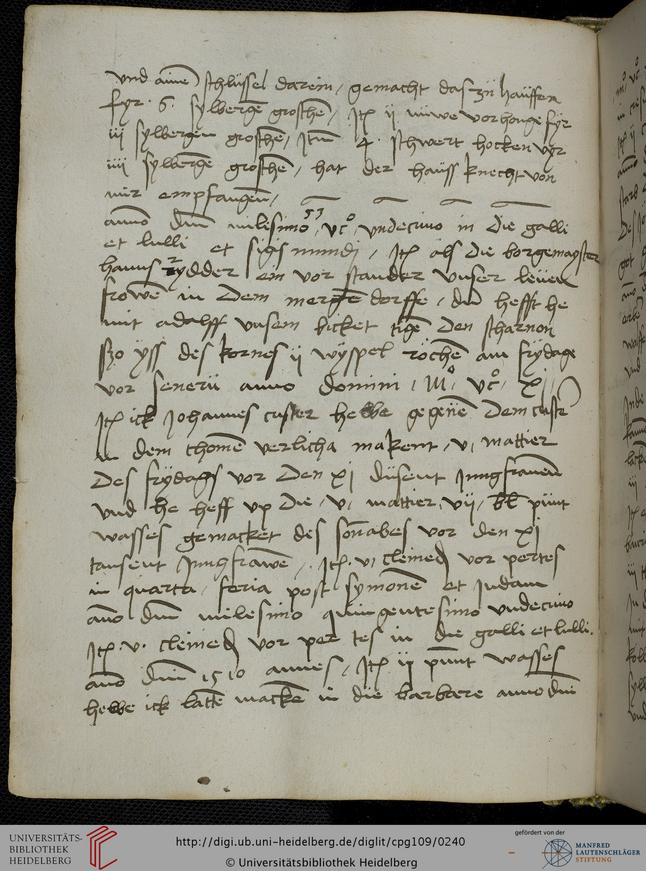 vnd ainen schlüssel darein, gemacht das zü hauffen
fyr 6 sylbergen groschen, Itz ii nüwe vorhange fyr
iii sylbergen groschen, Item 4 schwert hocken vor
iiii sylbergen groschen, hat der hauss knecht von
mir empfangen,
anno dm milesimo vc° vndecimo in die galli
et lulli et sigsmundj, Itz als die borgemayster
hanns rydder ein vor stander vnser leuen
frowen in dem mergen dorffe, du hefft he
mit adolff vnsem licket tigen den scharnon
so yss des kornes ii wyspel rochen am frydage
vor seuerii anno domini M° vc° xi
Itz ick Johannes custer hebbe gegeuen dem custer
in dem thome verlicha makent, vi mattier
des frydags vor den xi dusent Jungfrauen
vnd he heff vp die vi mattier, vii punt
wasses gemacket des sonabes vor den xi
tausent Jungfrawen, Itz vi cleined vor pertes
in quarta feria post symonem et Judam
ano dm milesimo quingentesimo vndecimo
Itz v cleined vor per tes in die galli et lulli.
ano dm 1510 annes, Itz ii punt wasses
hebbe ick latten macken in die barbare anno dm
UNIVERSITÄTS-
BIBLIOTHEK
HEIDELBERG
http://digi.ub.uni-heidelberg.de/diglit/cpg109/0240
© Universitätsbibliothek Heidelberg
gefördert von der
MANFRED
LAUTENSCHLÄGER
STIFTUNG